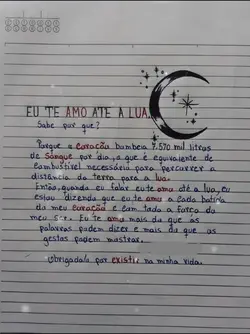 EU TE AMO ATÉ A LUA.
Sabe por que?
Porque o coração bombeia 7.570 mil litros
de Sangue por dia, o que é equivalente de
combustível necessário para percorrer a
distância da terra para a lua.
Então, quando eu falar eu te amo até a lua, eu
estou dizendo que eu te amo a cada batida
do meu coração e com toda a força do
meu Ser. Eu te amo mais do que as
palavras podem dizer e mais do que os
gestos podem mostrar.
Obrigada por existir na minha vida.